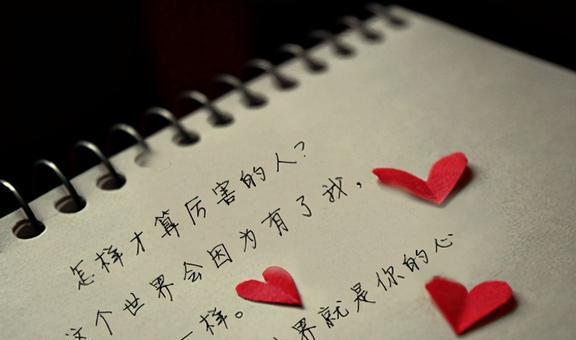 怎样才算厉害的人?
这个世界会因为有了我,
一样。 界就是你的心